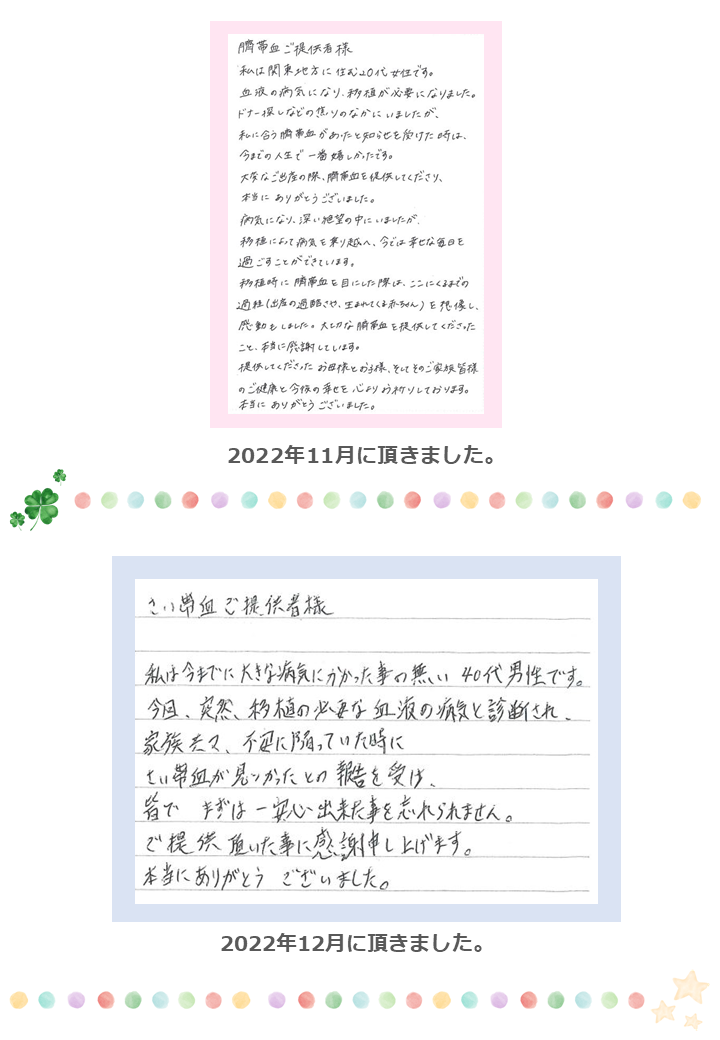 臍帯血ご提供者様
私は関東地方に住む20代女性です。
血液の病気になり、移植が必要になりました。
ドナー探しなどの焦りのなかにいましたが、
私に合う臍帯血があったと知らせを受けた時は、
今までの人生で一番嬉しかったです。
大変なご出産の際、臍帯血を提供してくださり、
本当にありがとうございました。
病気になり、深い絶望の中にいましたが、
移植によって病気を乗り越え、今では幸せな毎日を
過ごすことができています。
移植時に臍帯血を目にした際は、ここにくるまでの
過程(出産の過酷さや、生まれてくる赤ちゃん)を想像し、
感動もしました。大切な臍帯血を提供してくださった
こと、本当に感謝しています。
提供してくださったお母様とお子様、そしてそのご家族皆様
のご健康と今後の幸せを心よりお祈りしております。
本当にありがとうございました。
2022年11月に頂きました。
さい帯血ご提供者様
私は今までに大きな病気にかかった事の無い40代男性です。
今回、突然、移植の必要な血液の病気と診断され、
家族共々、不安に陥っていた時に
さい帯血が見つかったとの報告を受け、
皆でまずは一安心出来た事を忘れられません。
ご提供頂いた事に感謝申し上げます。
本当にありがとうございました。
2022年12月に頂きました。